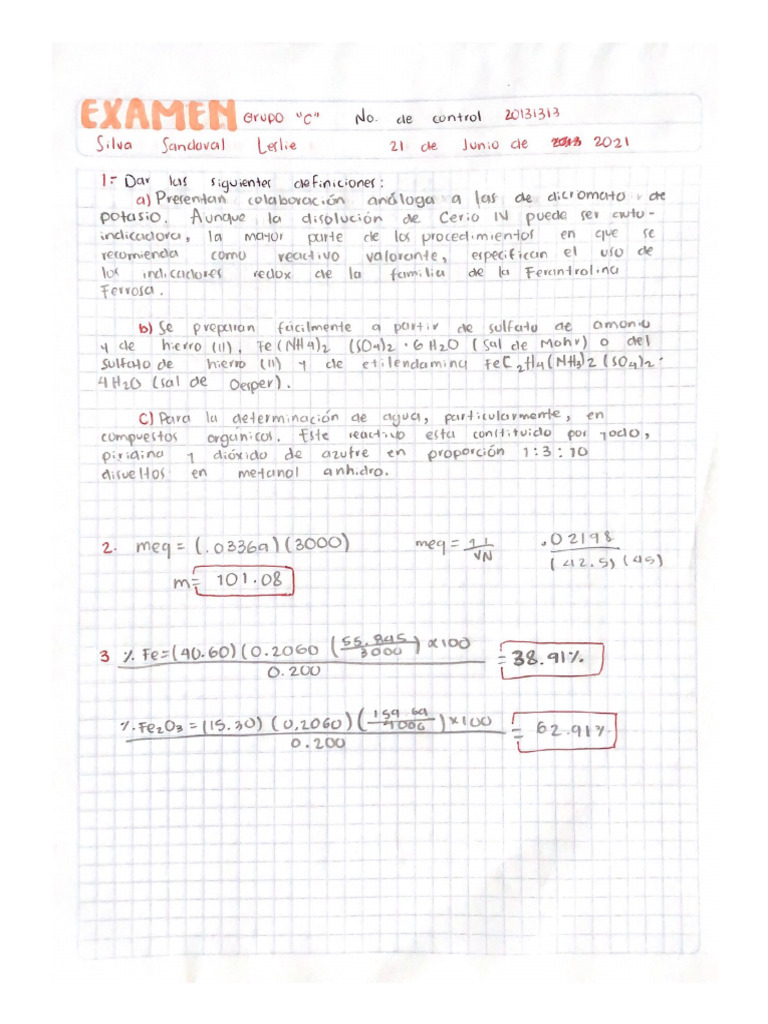 EXAMEN Grupo "C" No. de control 20131313
Silva Sandoval Leslie 21 de Junio de 2021
1.- Dar las siguientes definiciones:
a) Presentan colaboración análoga a las de dicromato de
potasio. Aunque la disolución de Cerio IV puede ser auto-
indicadora, la mayor parte de los procedimientos en que se
recomienda como reactivo valorante, especifican el uso de
los indicadores redox de la familia de la Ferantrolina
Ferrosa.
b) Se preparan fácilmente a partir de sulfato de amonio
y de hierro (II), Fe(NH4)2 (SO4)2 · 6H2O (Sal de Mohr) o del
sulfato de hierro (II) y de etilendamina FeC2H4(NH3)2(SO4)2 ·
4H2O (sal de Oesper).
C) Para la determinación de agua, particularmente, en
compuestos orgánicos. Este reactivo esta constituido por yodo,
piridina y dióxido de azufre en proporción 1:3:10
disueltos en metanol anhidro.
2. meq = (.03369)(3000) meq = 11/VN .02198/(42.5)(45)
m= 101.08
3 %Fe=(40.60)(0.2060(55.845/3000)x100/0.200 = 38.91%
%Fe2O3=(15.30)(0,2060)(159.69/)x100/0.200 = 62.91%